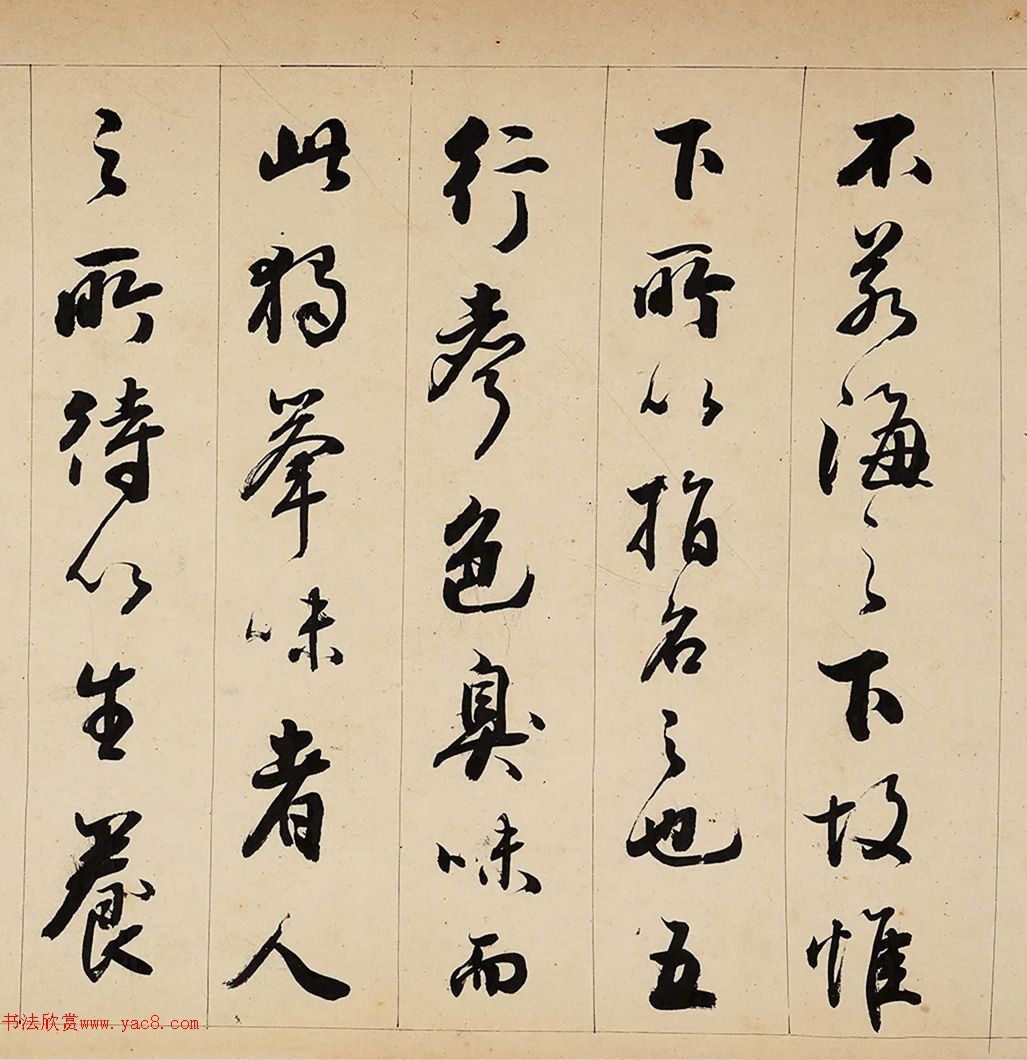 不若海之下故惟
下所以指名之也五
行考色臭味而
此獨舉味者人
之所待以生養
书法欣赏www.yac8.com